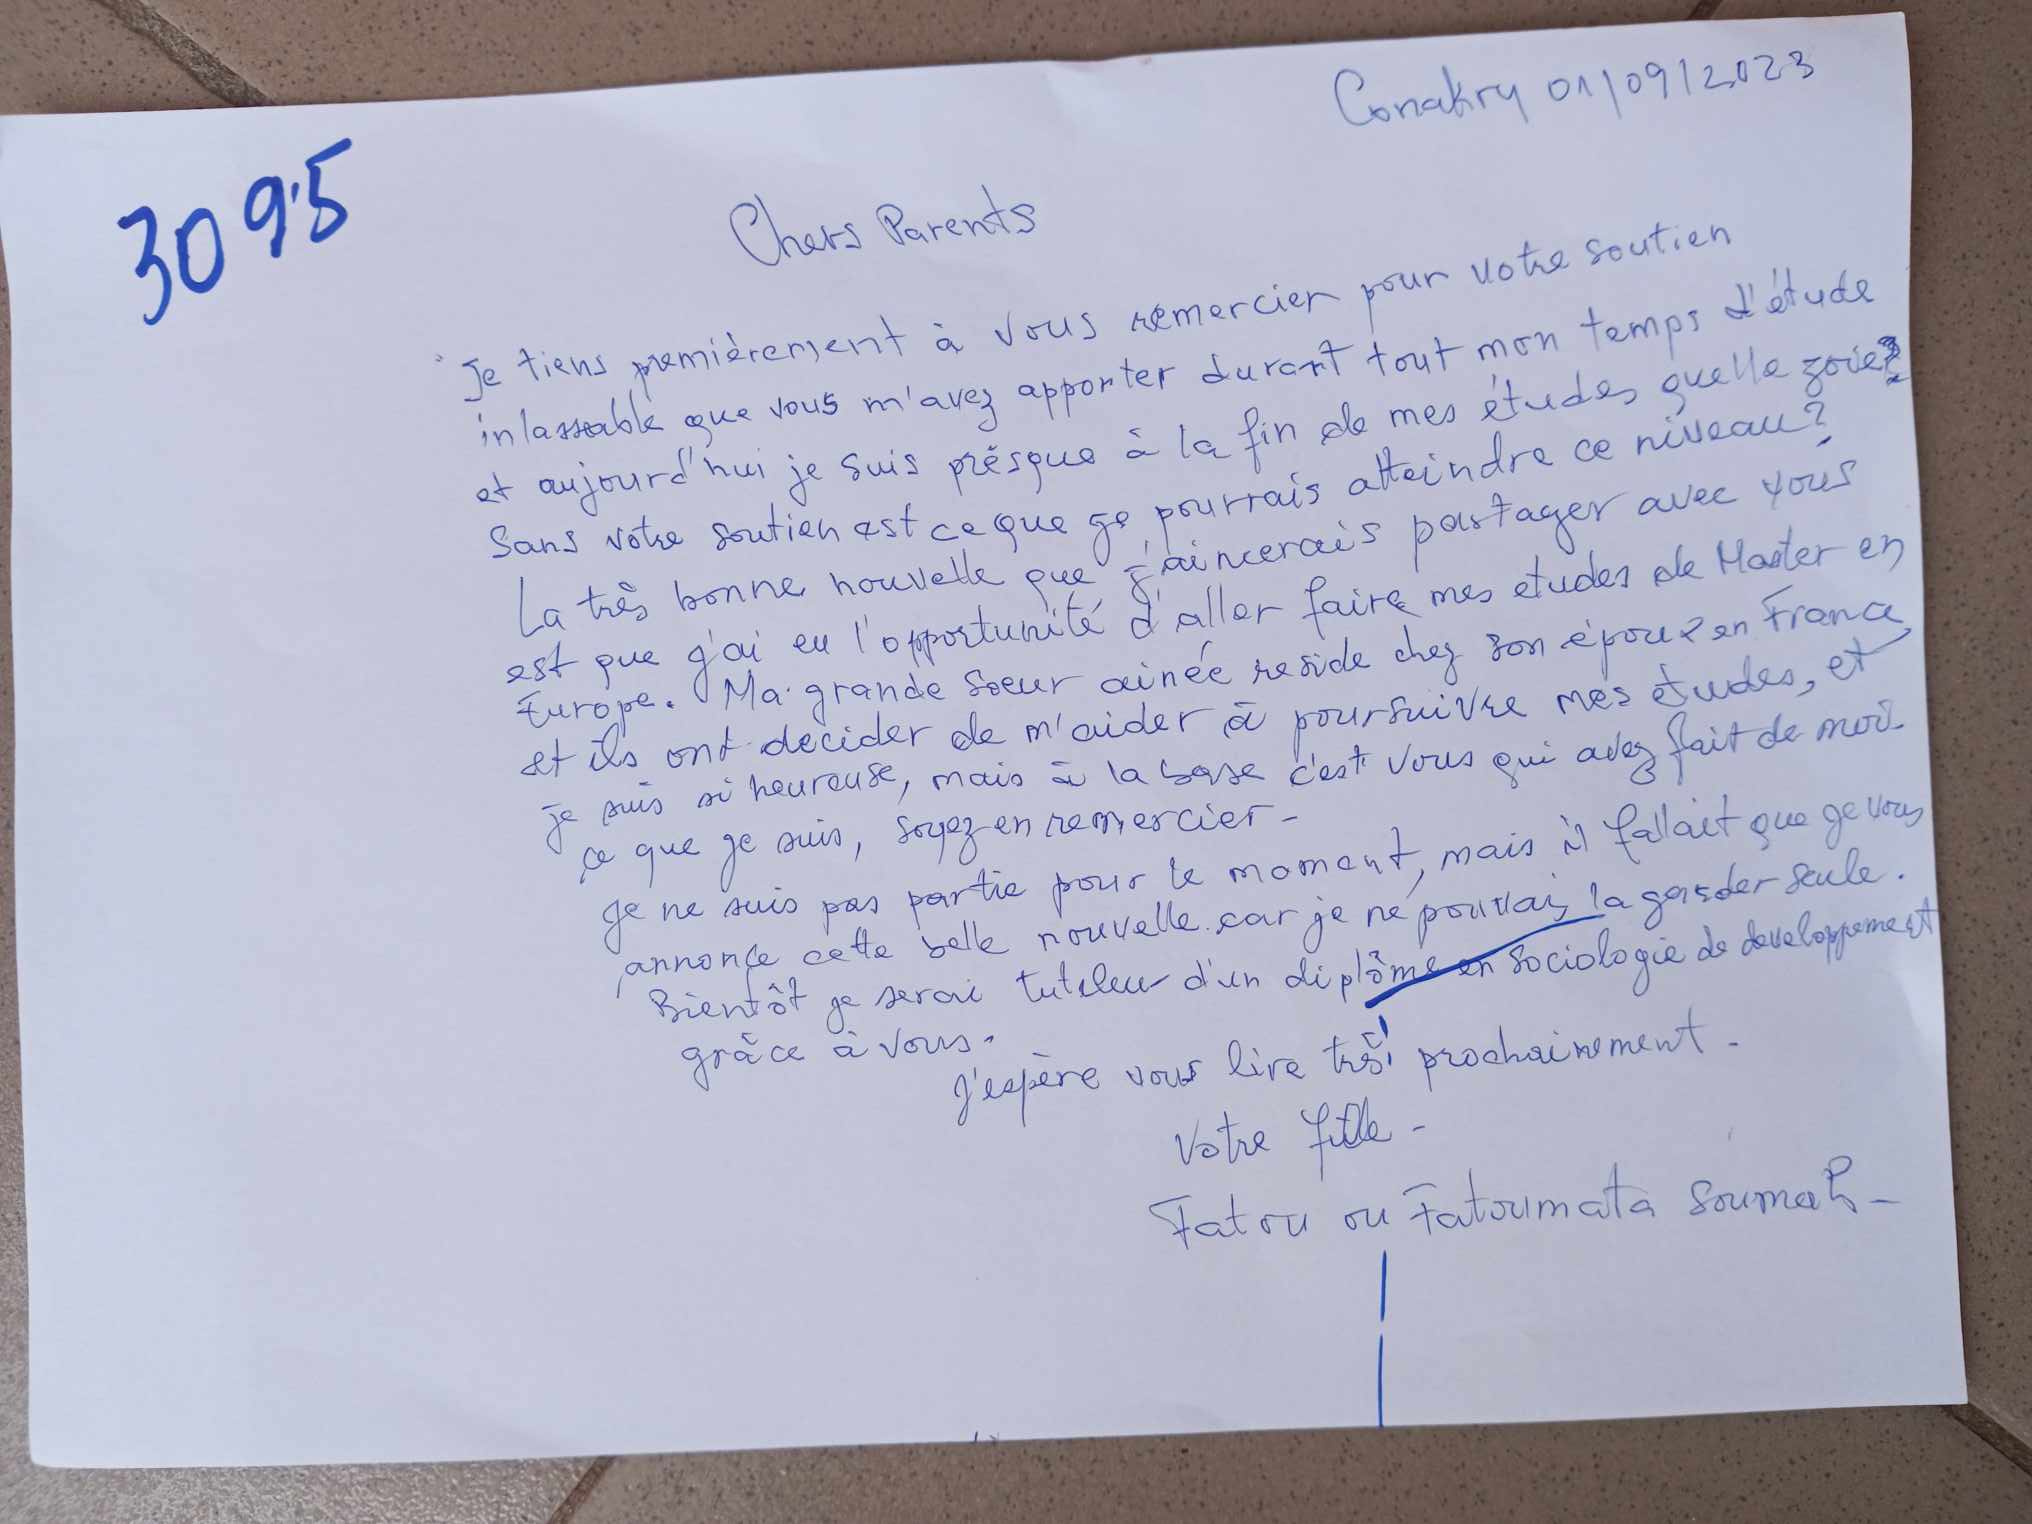 Conakry 01/09/2023
3095
Chers Parents
Je tiens premièrement à vous remercier pour votre soutien
inlassable que vous m'avez apporter durant tout mon temps d'étude
et aujourd'hui je suis présque à la fin de mes études quelle
Sans votre soutien est ce que je pourrais atteindre ce niveau?
La très bonne nouvelle que j'aimerais partager avec vous
est que j'ai eu l'opportunité d'aller faire mes etudes de Master en
Europe. Ma grande Soeur ainée reside chez son époux en France,
et ils ont decider de m'aider à poursuivre mes études, et
je suis si heureuse, mais à la base c'est vous qui avez fait de moi
ce que je suis, soyez en remercier-
Je ne suis pas partie pour le moment, mais il fallait que je vous
annonce cette belle nouvelle car je ne pouvais la garder seule.
Bientôt je serai d'un diplôme en sociologie de developpement
grâce à vous.
J'espère vous lire très prochainement.
Votre fille-
Fatou ou Fatoumata Soumah-